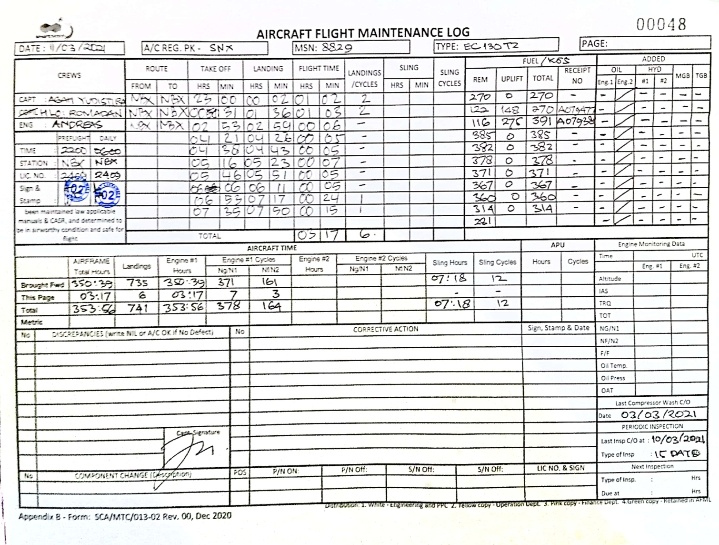 00048
AIRCRAFT FLIGHT MAINTENANCE LOG
DATE: 11/03/2021 A/C REG. PK - SNX MSN: 8829 TYPE: EC130T2 PAGE:
CREWS ROUTE TAKE OFF LANDING FLIGHT TIME LANDINGS/CYCLES SLING SLING CYCLES FUEL/KGS ADDED
FROM TO HRS MIN HRS MIN HRS MIN HRS MIN REM UPLIFT TOTAL RECEIPT NO OIL HYD MGB TGB
Eng.1 Eng.2 #1 #2
CAPT NBX NBX 23 00 00 02 01 02 2 270 0 270 -
NBX NBX 31 01 36 01 03 2 122 148 270
ENG ANDREAS NBX NBX 02 53 02 59 00 06 - 116 275 391
PREFLIGHT DAILY 04 21 04 26 00 05 - 385 0 385 -
TIME 2200 0600 04 38 04 43 00 05 - 382 0 382 -
STATION: NBX NBX 05 16 05 23 00 07 - 378 0 378 -
LIC. NO. 2409 2409 05 46 05 51 00 05 - 371 0 371 -
Sign & 06 06 06 11 00 05 - 367 0 367 -
Stamp 06 53 07 17 00 24 1 360 0 360 -
07 35 07 50 00 15 1 314 0 314 -
been maintained law applicable
manuals & CASR, and determined to
be in airworthy condition and safe for
flight
TOTAL 03 17 6
AIRCRAFT TIME APU Engine Monitoring Data
AIRFRAME Total Hours Landings Engine #1 Hours Engine #1 Cycles Engine #2 Hours Engine #2 Cycles Sling Hours Sling Cycles Hours Cycles Time UTC
Ng/N1 Nf/N2 Ng/N1 Nf/N2 Eng. #1 Eng. #2
Brought Fwd 350:39 735 350:39 371 161 07:18 12 Altitude
This Page 03:17 6 03:17 7 3 - - IAS
Total 353:56 741 353:56 378 164 07:18 12 TRQ
Metric TOT
No DISCREPANCIES (write NIL or A/C OK if No Defect) No CORRECTIVE ACTION Sign, Stamp & Date NG/N1
NF/N2
F/F
Oil Temp.
Oil Press
OAT
Last Compressor Wash C/O
Date 03/03/2021
Capt. Signature
PERIODIC INSPECTION
Last Insp C/O at: 10/03/2021
Type of Insp :
No COMPONENT CHANGE (Description) POS P/N ON: P/N Off: S/N Off: S/N Off: LIC NO. & SIGN Next Inspection
Type of Insp. : Hrs
Due at : Hrs
Distribution: 1. White - Engineering and PPC 2. Yellow copy - Operation Dept. 3. Pink copy - Finance Dept. 4. Green copy - Retained in AFML
Appendix B - Form: SCA/MTC/013-02 Rev. 00, Dec 2020